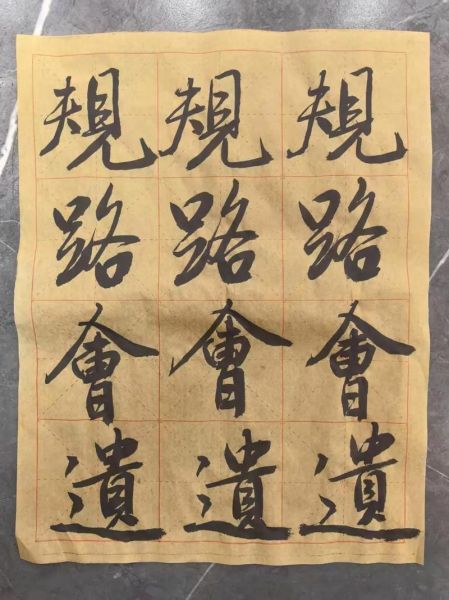 規路會遺
規路會遺
規路會遺